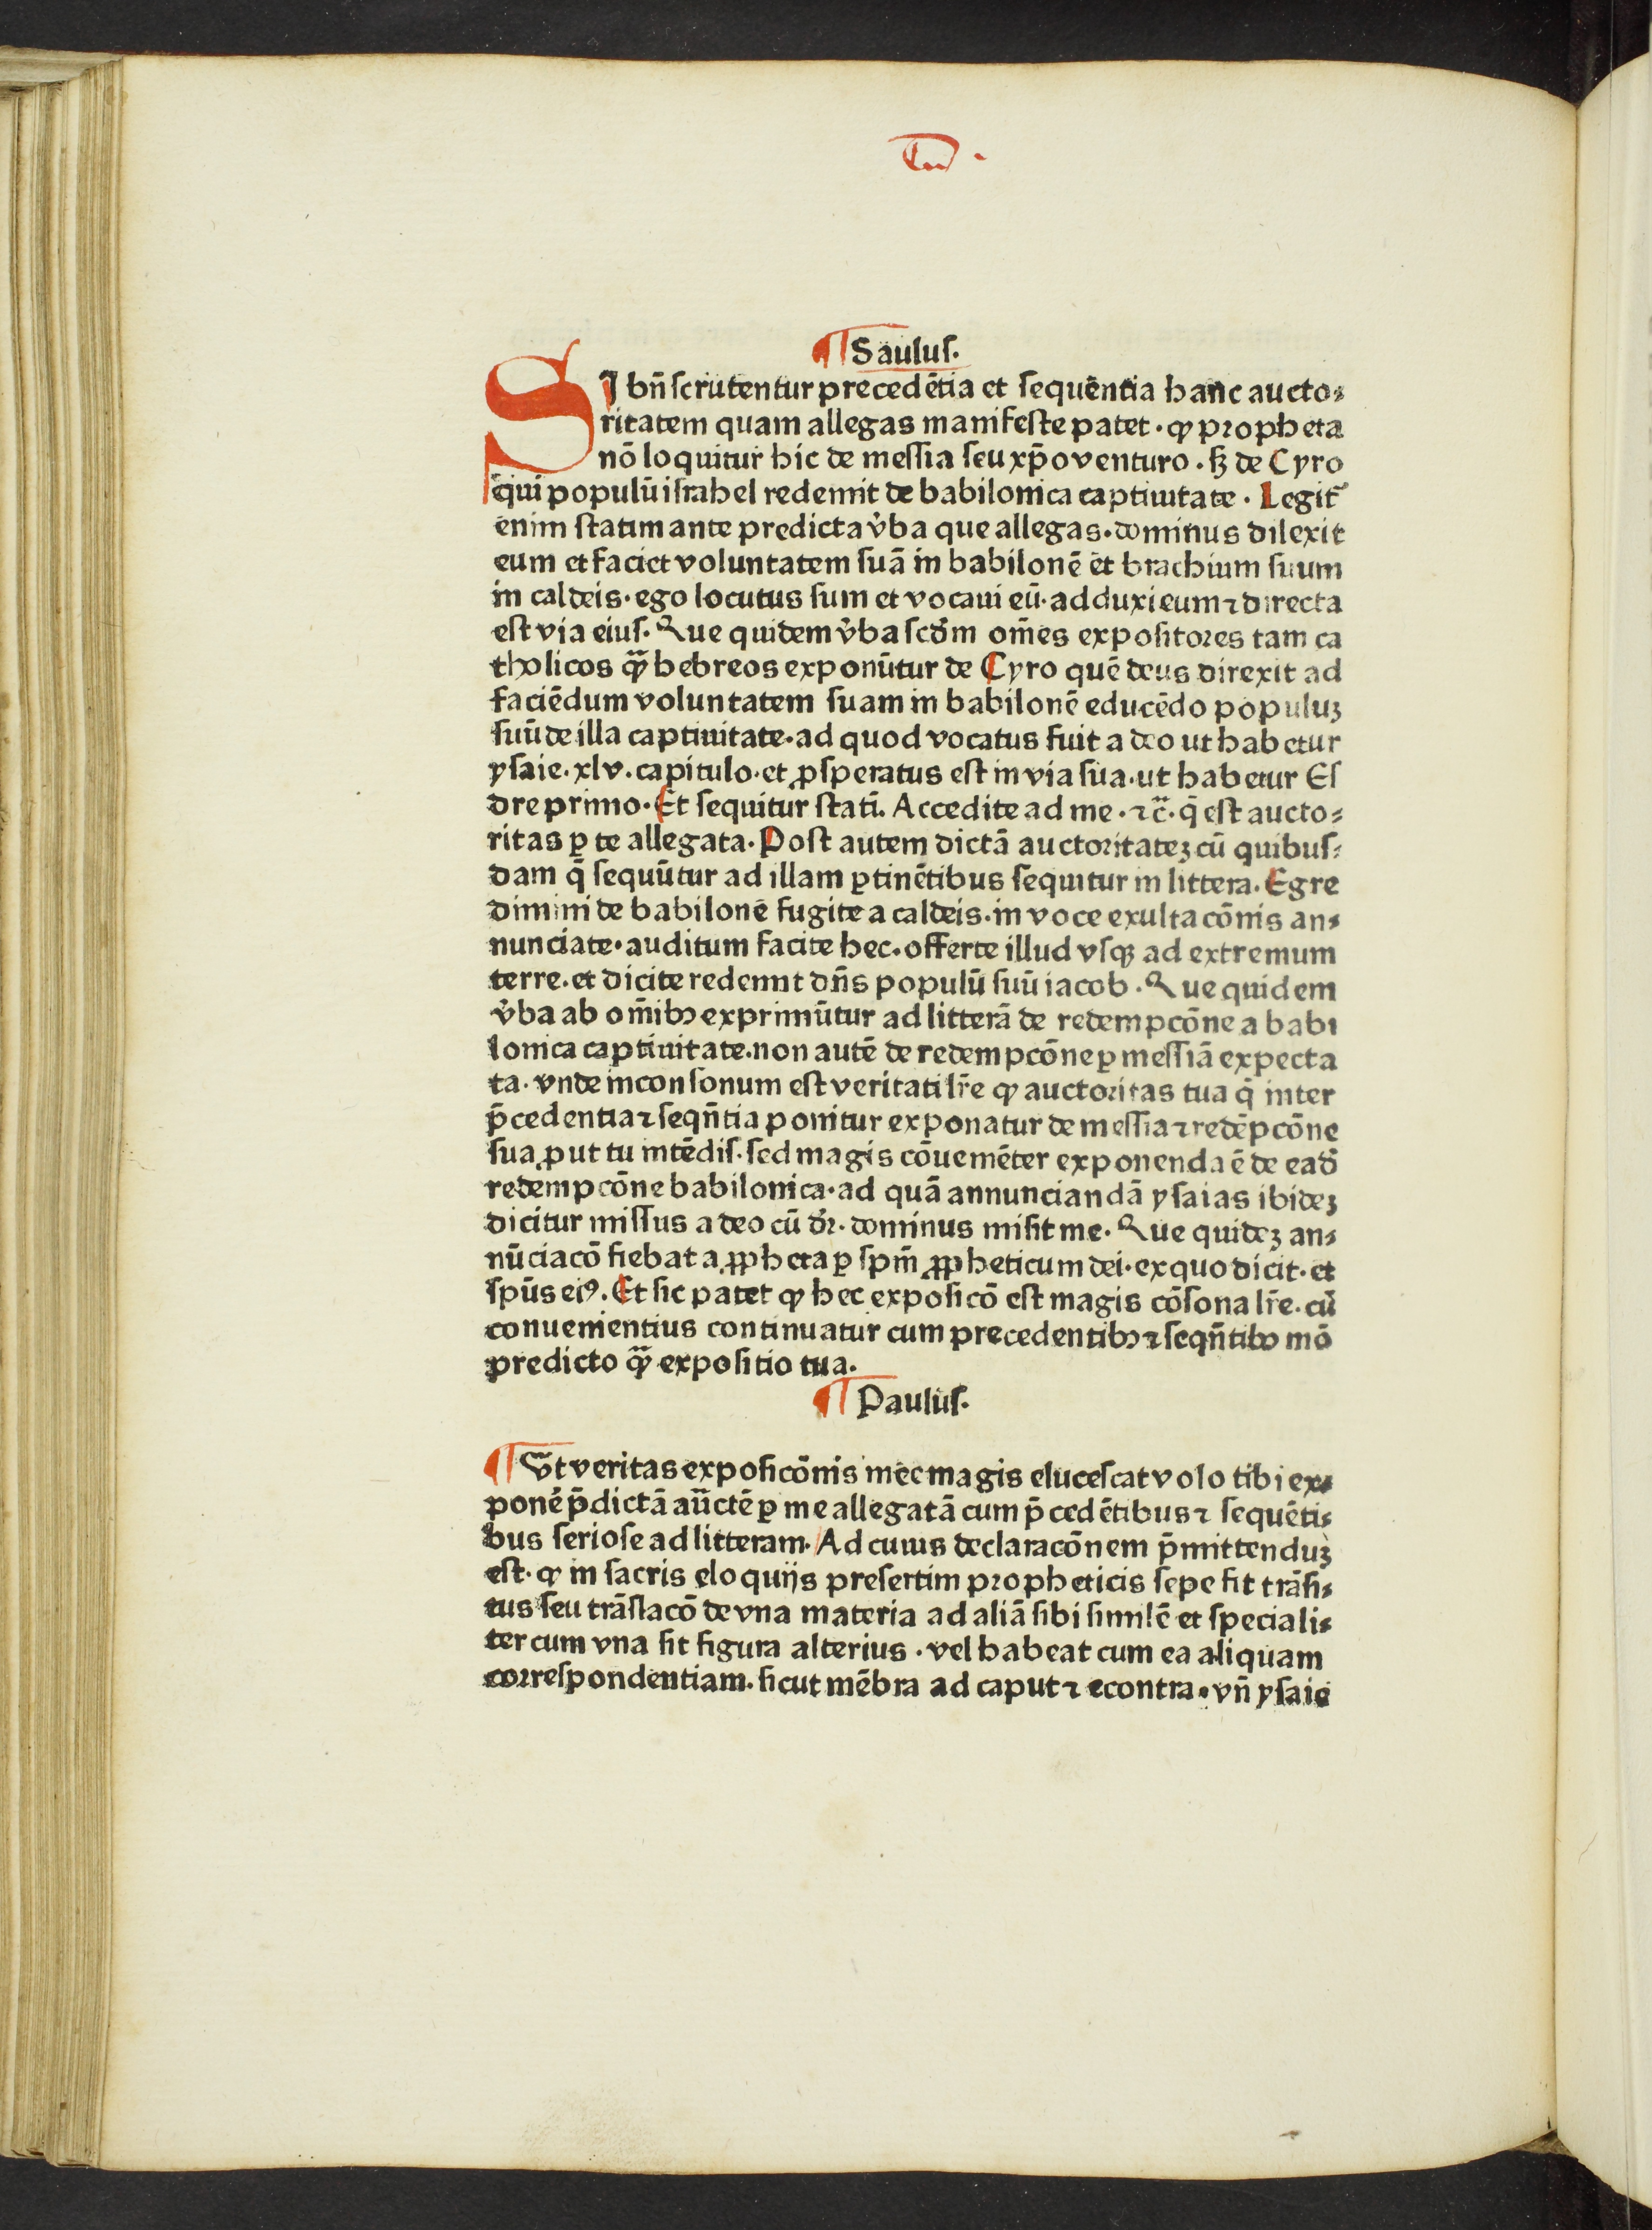 ¶ Saulus.
SI bn̄ scrutentur precedētia et sequēntia hanc aucto⸗
ritatem quam allegas manifeste patet . ꝙ propheta
nō loquitur hic de messia seu xp̄o venturo . sꝫ de Cyro
qui populū israhel redemit de babilonica captiuitate . Legit᷑
enim statim ante predicta v̉ba que allegas. dominus dilexit
eum et faciet voluntatem suā in babilonē et brachium suum
in caldeis. ego locutus sum et vocaui eū. adduxi eum ⁊ directa
est via eius. Que quidem v̉ba scd̉m om̄es expositores tam ca
tholicos qᷓꝫ hebreos exponūtur de Cyro quē deus direxit ad
faciēdum voluntatem suam in babilonē educēdo populuꝫ
suū de illa captiuitate. ad quod vocatus fuit a deo ut habetur
ysaie. xlv. capitulo. et ꝓsperatus est in via sua. ut habetur Es
dre primo. Et sequitur statī. Accedite ad me . ⁊c̄. q̄ est aucto⸗
ritas ꝑ te allegata. Post autem dictā auctoritateꝫ cū quibus⸗
dam q̄ sequūtur ad illam ꝑtinētibus sequitur in littera. Egre
dimini de babilonē fugite a caldeis. in voce exultacōnis an⸗
nunciate. auditum facite hec. offerte illud vsqꝫ ad extremum
terre. et dicite redemit dn̄s populū suū iacob . Que quidem
v̉ba ab om̄ibꝫ exprimūtur ad litterā de redempcōne a babi
lonica captiuitate. non autē de redempcōne ꝑ messiā expecta
ta. vnde inconsonum est veritati lr̄e ꝙ auctoritas tua q̄ inter
p̄cedentia ⁊ seqn̄tia ponitur exponatur de messia ⁊ redēpcōne
sua ꝓut tu intēdis. sed magis cōueniēter exponenda ē de ead̉
redempcōne babilonica. ad quā annunciandā ysaias ibideꝫ
dicitur missus a deo cū d̉r. dominus misit me. Que quideꝫ an⸗
nūciacō fiebat a ꝓpheta ꝑ spm̄ ꝓpheticum dei. ex quo dicit. et
spūs eiꝰ. Et sic patet ꝙ hec exposicō est magis cōsona lr̄e. cū
conuenientius continuatur cum precedentibꝫ ⁊ seqn̄tibꝫ mō
predicto qᷓꝫ expositio tua.
¶ Paulus.
¶ Vt veritas exposicōnis mee magis elucescat volo tibi ex⸗
ponē p̄dictā auc̄tē ꝑ me allegatā cum p̄cedētibus ⁊ sequēti⸗
bus seriose ad litteram. Ad cuius declaracōnem p̄mittenduꝫ
est. ꝙ in sacris eloquijs presertim propheticis sepe fit trāsi⸗
tus seu trāslacō de vna materia ad aliā sibi similē et speciali⸗
ter cum vna sit figura alterius . vel habeat cum ea aliquam
correspondentiam. sicut mēbra ad caput ⁊ econtra. vn̄ ysaie